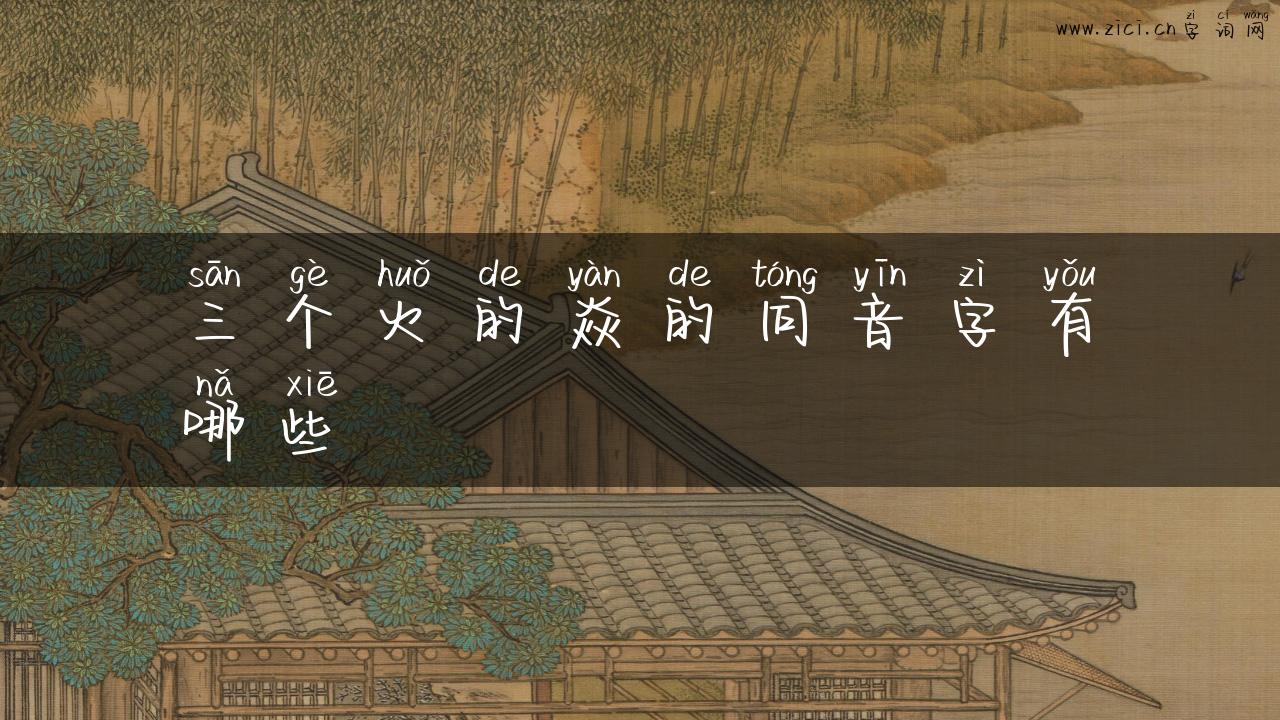 zì cí wǎng
www.zici.cn字词网
sān gè huǒ de yàn de tóng yīn zì yǒu
三个火的焱的同音字有
nǎ xiē
哪些